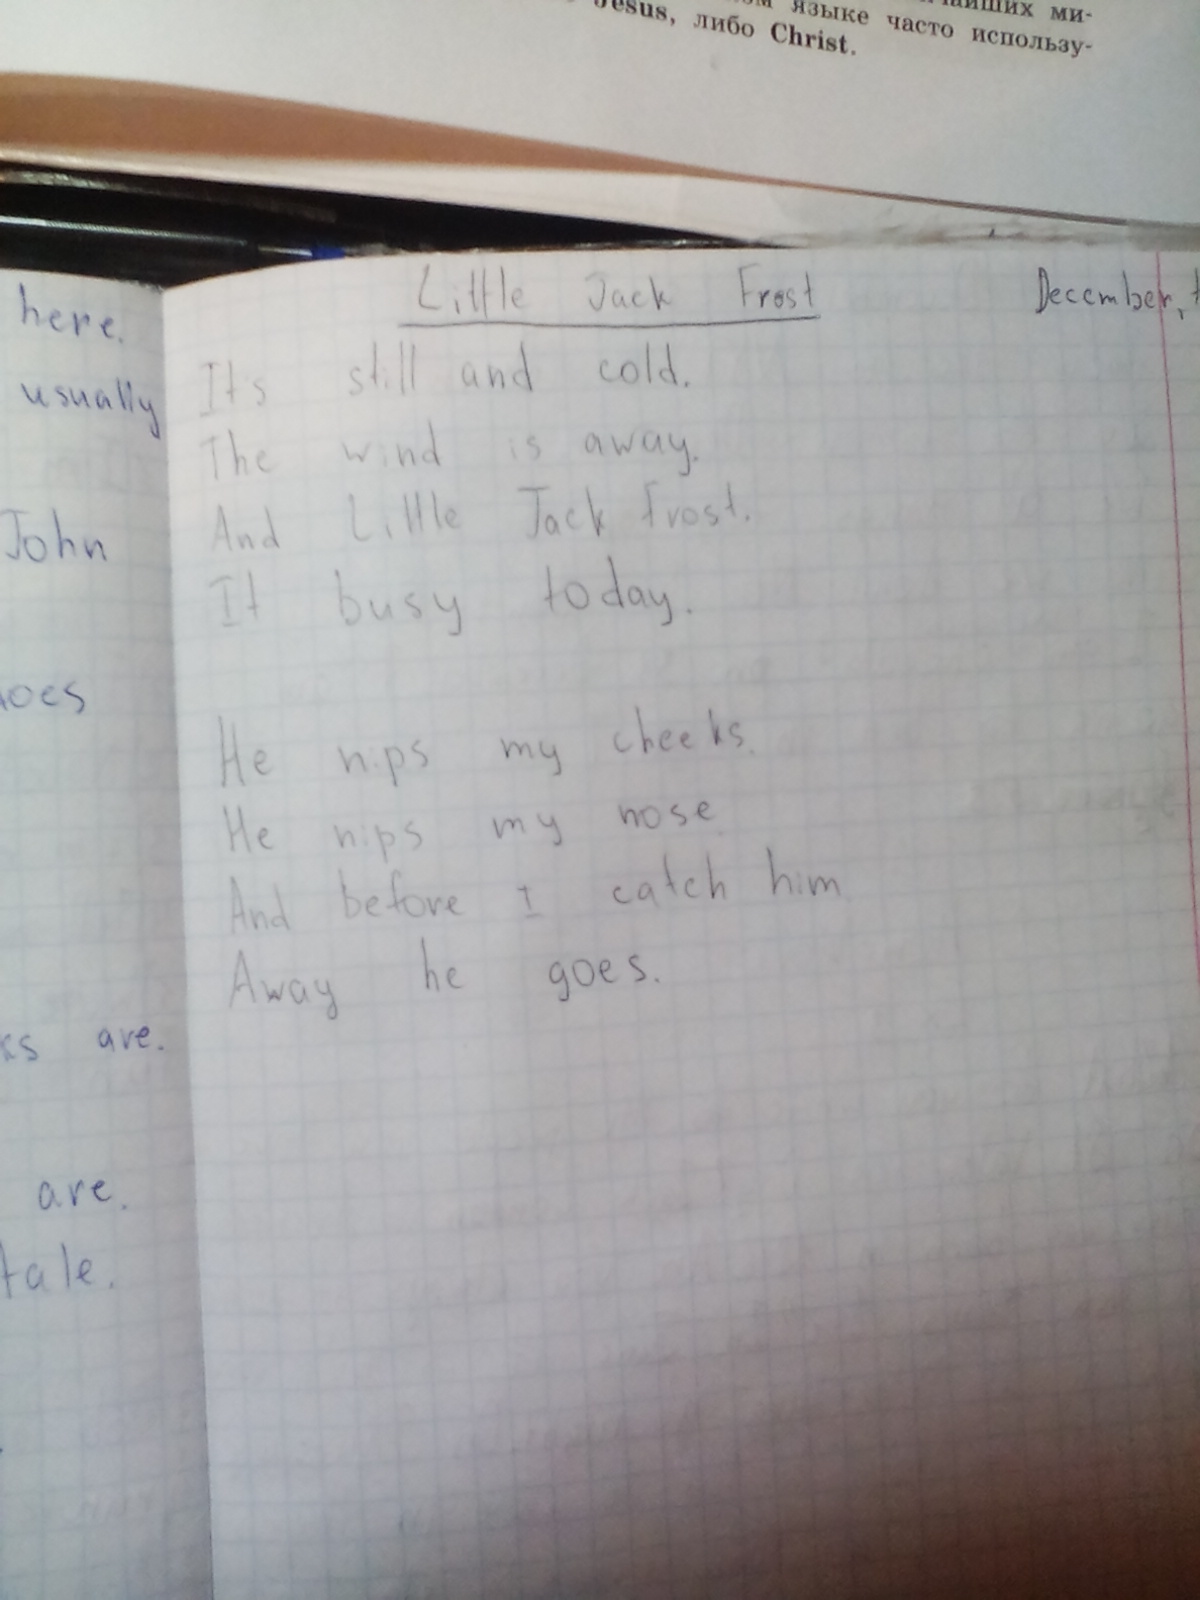 языке часто использу-
Jesus, либо Christ.
here.
usually
John
ks are.
are.
tale.
Little Jack Frost
December,
It's still and cold.
The wind is away.
And Little Jack Frost.
It busy today.
He nips my cheeks.
He nips my nose
And before I catch him
Away he goes.